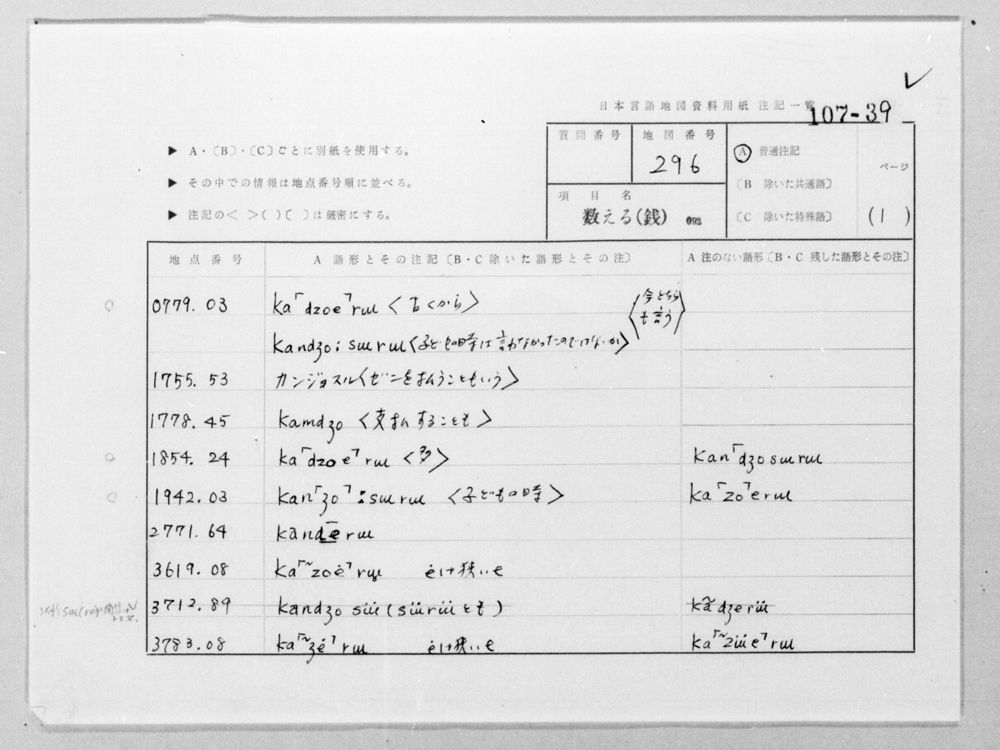 日本言語地図資料用紙 注記一覧
107-39
▶ A・〔B〕・〔C〕ごとに別紙を使用する。
▶ その中での情報は地点番号順に並べる。
▶ 注記の< >( )〔 〕は厳密にする。
質問番号
地図番号
296
項目名
数える(銭) 093
A 普通注記
〔B 除いた共通語〕
〔C 除いた特殊語〕
ページ
(1)
地点番号 A 語形とその注記〔B・C除いた語形とその注〕 A 注のない語形〔B・C 残した語形とその注〕
0779.03 ka「dzoe」rɯ <古くから>
kandʒo:sɯrɯ<子どもの時は言わなかったのではないか>
<今どちらも言う>
1755.53 カンジョスル<ゼニを払うこともいう>
1778.45 kamdʒo <支払することも>
1854.24 ka「dzoe」rɯ <多> kan「dʒosɯrɯ
1942.03 kan「ʒo」:sɯrɯ <子どもの時> ka「zo」erɯ
2771.64 kãnderɯ
3619.08 ka「~zoė」rɯ ėは狭いe
3712.89 kandʒo sɯ̈(sɯ̈rɯ̈とも) kãdʒerɯ̈
3783.08 ka「~ʒė」rɯ ėは狭いe ka「~zɯ̈e」rɯ